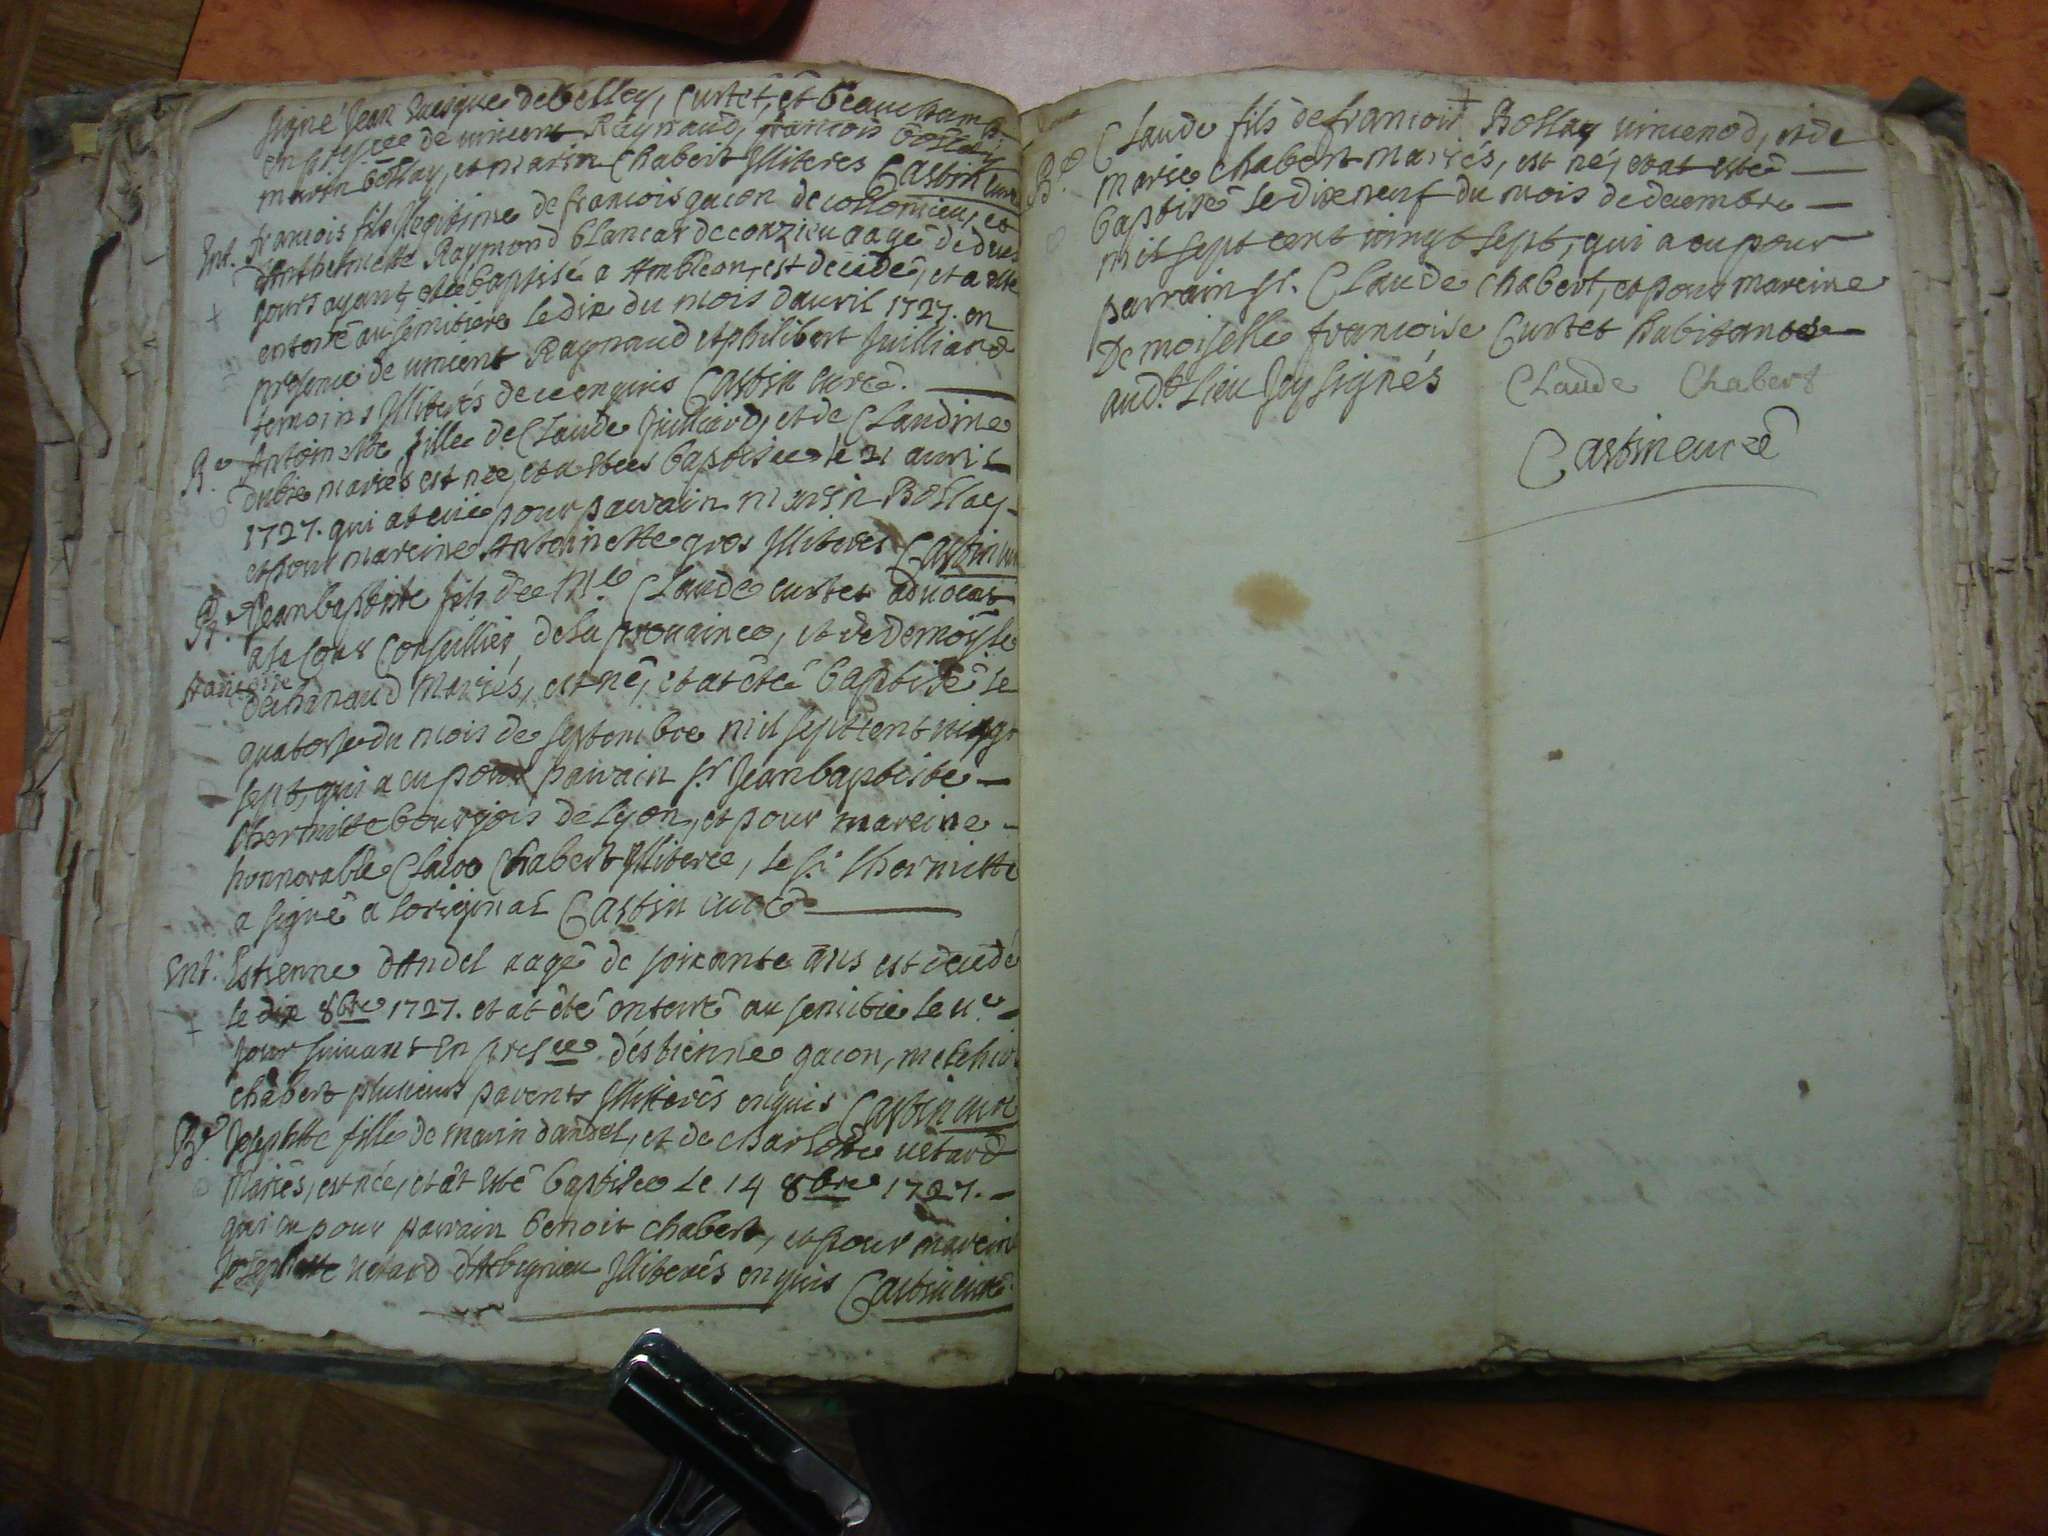 signé Jean Jacque debelley, Curtet, et beauchamp
en pnce de vincent Raynaud, francois bollay
marin bollay, et marin Chabert Illiteres Castin curé
Ent. francois fils legitime de francois gacon de colomieu, et
d'Anthelmette Raymond blancar de conzieu aagé de deux
jours ayant esté baptisé a Ambleon, est decedé, et a esté
enterré au semitiere le dix du mois d'auril 1727. en
presence de vincent Raynaud et philibert Juilliard
temoins Illiterés de ce enquis Castin curé.
B.e Antoinette fille de Claude Juilliard, et de Claudine
dubie mariés est née, et a estees baptisee le 21 auril
1727. qui at euë pour parrain marin Bollay
et pour mareine Antoinette gros Illiteres Castin cur
B.e Jean baptiste fils de M.e Claude curtet aduocat
a la Cour Conseillier de la prouaince, et de demoiselle
francoise
dechanaud Mariés, est né, et at été baptisé le
quatorse du mois de septembre mil sept cent vingt
sept, qui a eu pour parrain sr. Jean baptiste
thermitte bourgois de Lyon, et pour mareine
honnorable Claire Chabert Illiteree, le sr. thermitte
a signé a loriginal Castin curé
Ent. Estienne dandel aagé de soixante ans est decedé
le dix 8bre 1727. et at été enterré au semitie le
jour suivant en presce d'estienne gacon, melchior
chabert plusieurs parents Illiterés enquis Castin curé
B.e Josephtte fille de marin dandel, et de charlotte vetard
Mariés, est née, et at esté baptisee le 14 8bre 1727.
qui eu pour parrain benoit chabert, et pour marein
Josephtte vetard d'Arbignieu Illiterés enquis Castin curé.
B.e Claude fils de francois Bollay vincenod, et de
marie chabert mariés, est né, et at esté
baptisé le dixneuf du mois de decembre
mil sept cent vingt sept, qui a eu pour
parrain sr. Claude chabert, et pour mareine
Demoiselle francoise Curtet habitantes
aud.t Lieu soysignés Claude Chabert
Castin curé